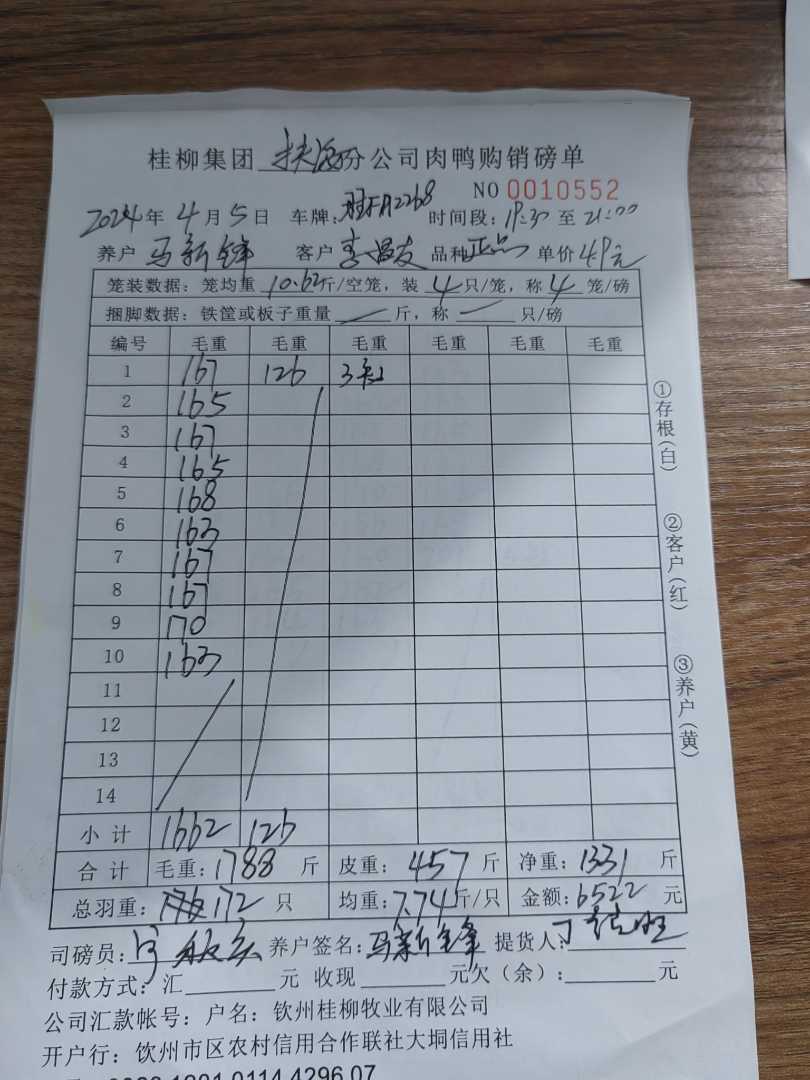 桂柳集团 扶海分公司肉鸭购销磅单
NO 0010552
2024年 4月5日 车牌: FA2268 时间段: 19:30 至 21:00
养户 马新锋 客户 李昌友 品种 正品 单价 4.9元
笼装数据: 笼均重 10.62 斤/空笼, 装 4 只/笼, 称 4 笼/磅
捆脚数据: 铁筐或板子重量 — 斤, 称 — 只/磅
编号 毛重 毛重 毛重 毛重 毛重 毛重
1 167 126 3笼
2 165
3 167
4 165
5 168
6 163
7 167
8 167
9 170
10 163
11
12
13
14
小计 1662 126
合计 毛重: 1788 斤 皮重: 457 斤 净重: 1331 斤
总羽重: 172 只 均重: 7.74 斤/只 金额: 6522 元
司磅员: 养户签名: 马新锋 提货人:
付款方式: 汇 元 收现 元欠(余): 元
公司汇款帐号: 户名: 钦州桂柳牧业有限公司
开户行: 钦州市区农村信用合作联社大垌信用社
①存根(白)
②客户(红)
③养户(黄)